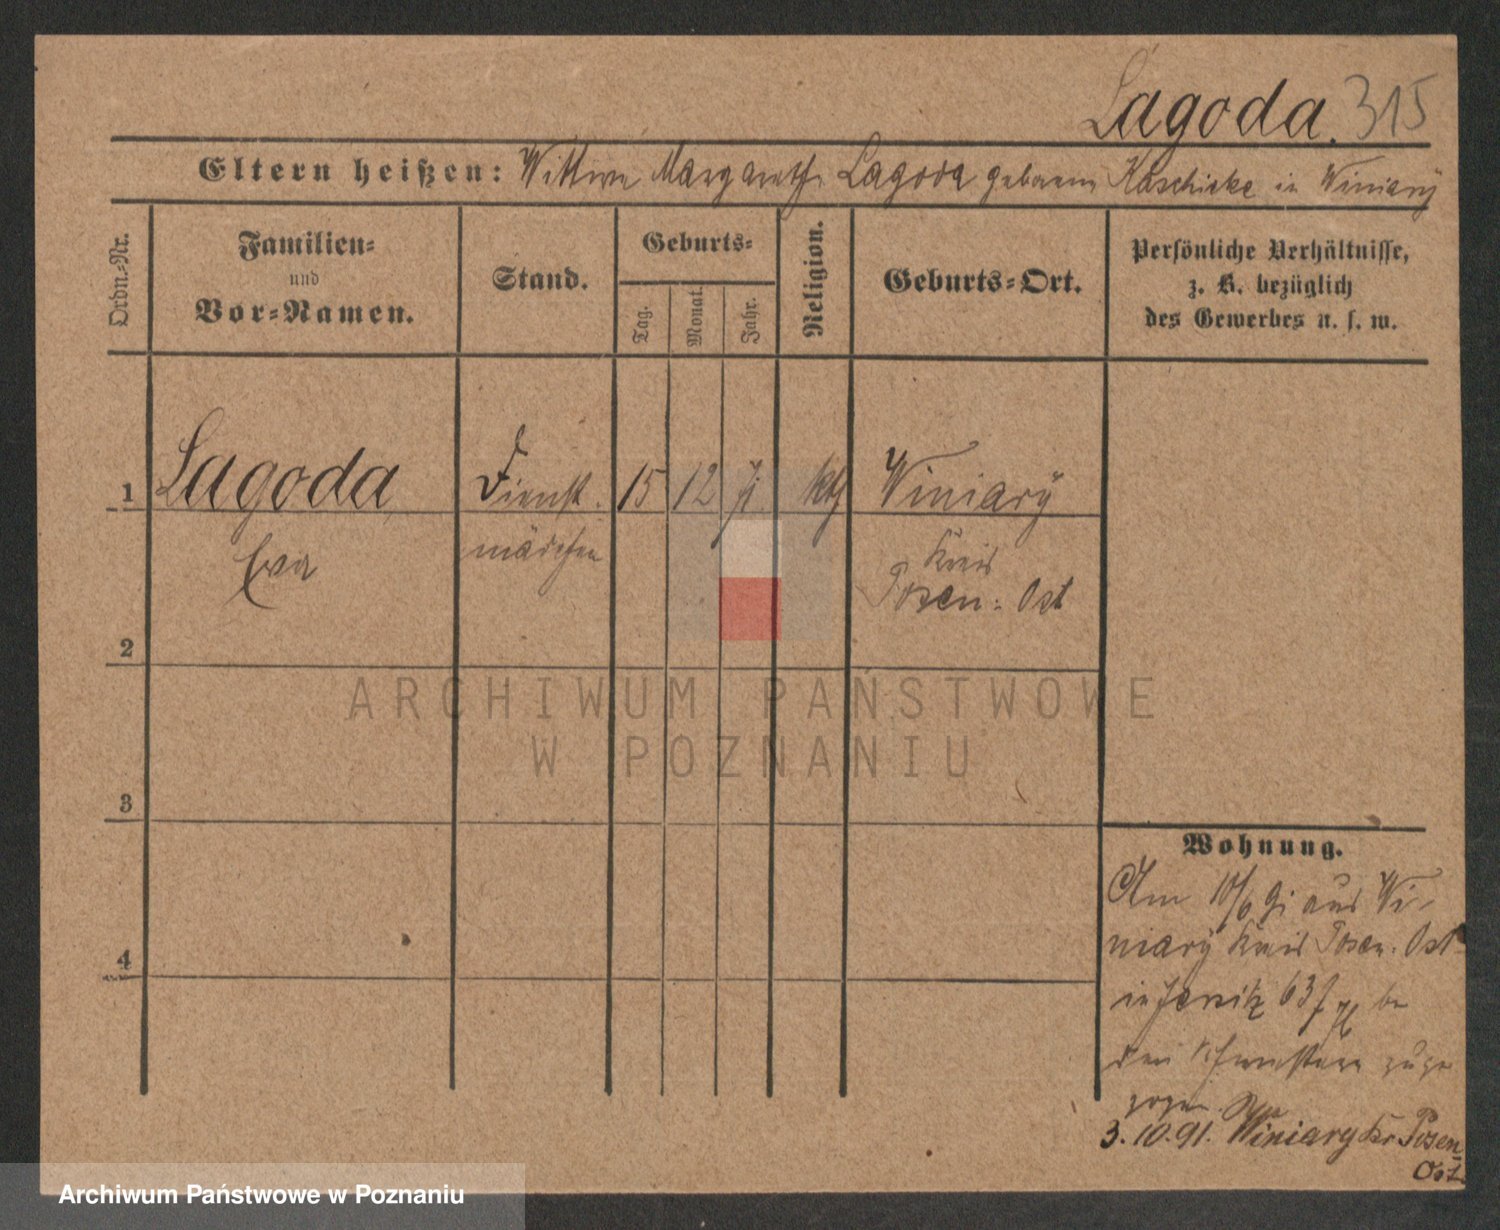 Lagoda. 315
Eltern heißen: Wittwe Margarethe Lagoda geborene Kaschicke in Winiary
Ordn.=Nr.
Familien=
und
Vor=Namen.
Stand.
Geburts=
Tag.
Monat.
Jahr.
Religion.
Geburts=Ort.
Persönliche Verhältnisse,
z. B. bezüglich
des Gewerbes u. s. w.
1 Lagoda, Dienst 15 12 kth Winiary
Eva mädchen Kreis
Posen: Ost
2
ARCHIWUM PAŃSTWOWE
W POZNANIU
3
4
Wohnung.
Am 10/6 91 aus Wi-
niary Kreis Posen. Ost
in Jersitz 63 be
den zuge
zogen.
3.10.91. Winiary Kr Posen-
Ost.
Archiwum Państwowe w Poznaniu